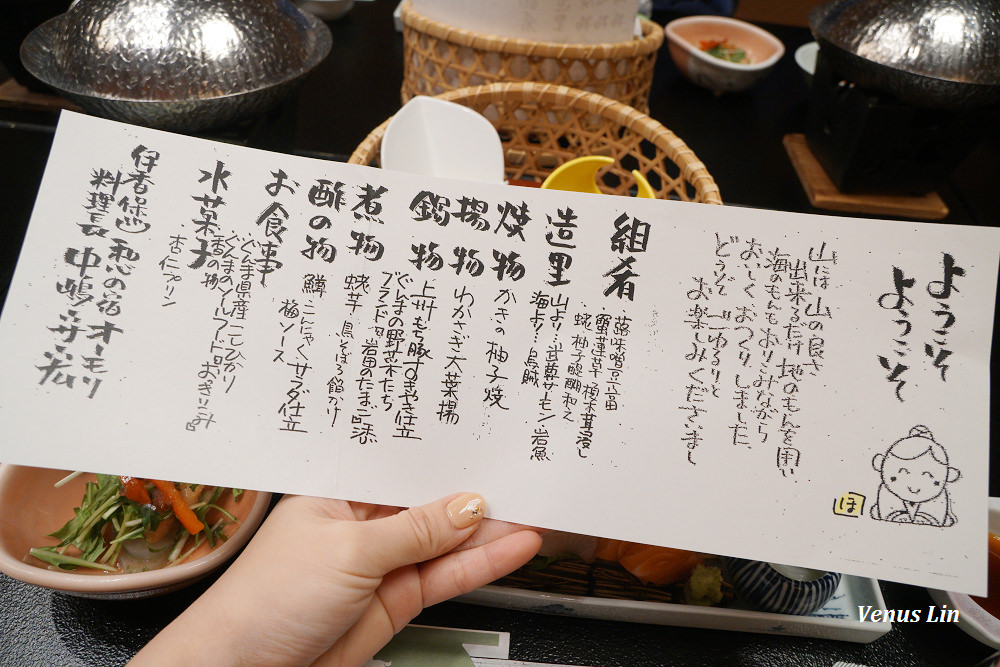 ようこそ
ようこそ
山には 山の良さ
出来るだけ 地のもんを用い
海のもんもおりこみながら
おいしくおつくりしました
どうぞ ごゆるりと
お楽しみくださいまし
ほ
組肴
蕗味噌豆腐
蟹蓮草 榎木茸浸し
蜆 柚子醍醐和え
造里
山より… 武蔵サーモン 岩魚
海より… 烏賊
焼物
かきの柚子焼
揚物
わかさぎ大葉揚
鍋物
上州もち豚すきやき仕立
ぐんまの野菜たち
煮物
海老芋 鳥そぼろ餡かけ
酢の物
鱒 こんにゃくサラダ仕立
梅ソース
お食事
ぐんま県産こしひかり
香の物
水菓子
杏仁プリン
伊香保温 和心の宿 オーモリ
料理長
Venus Lin